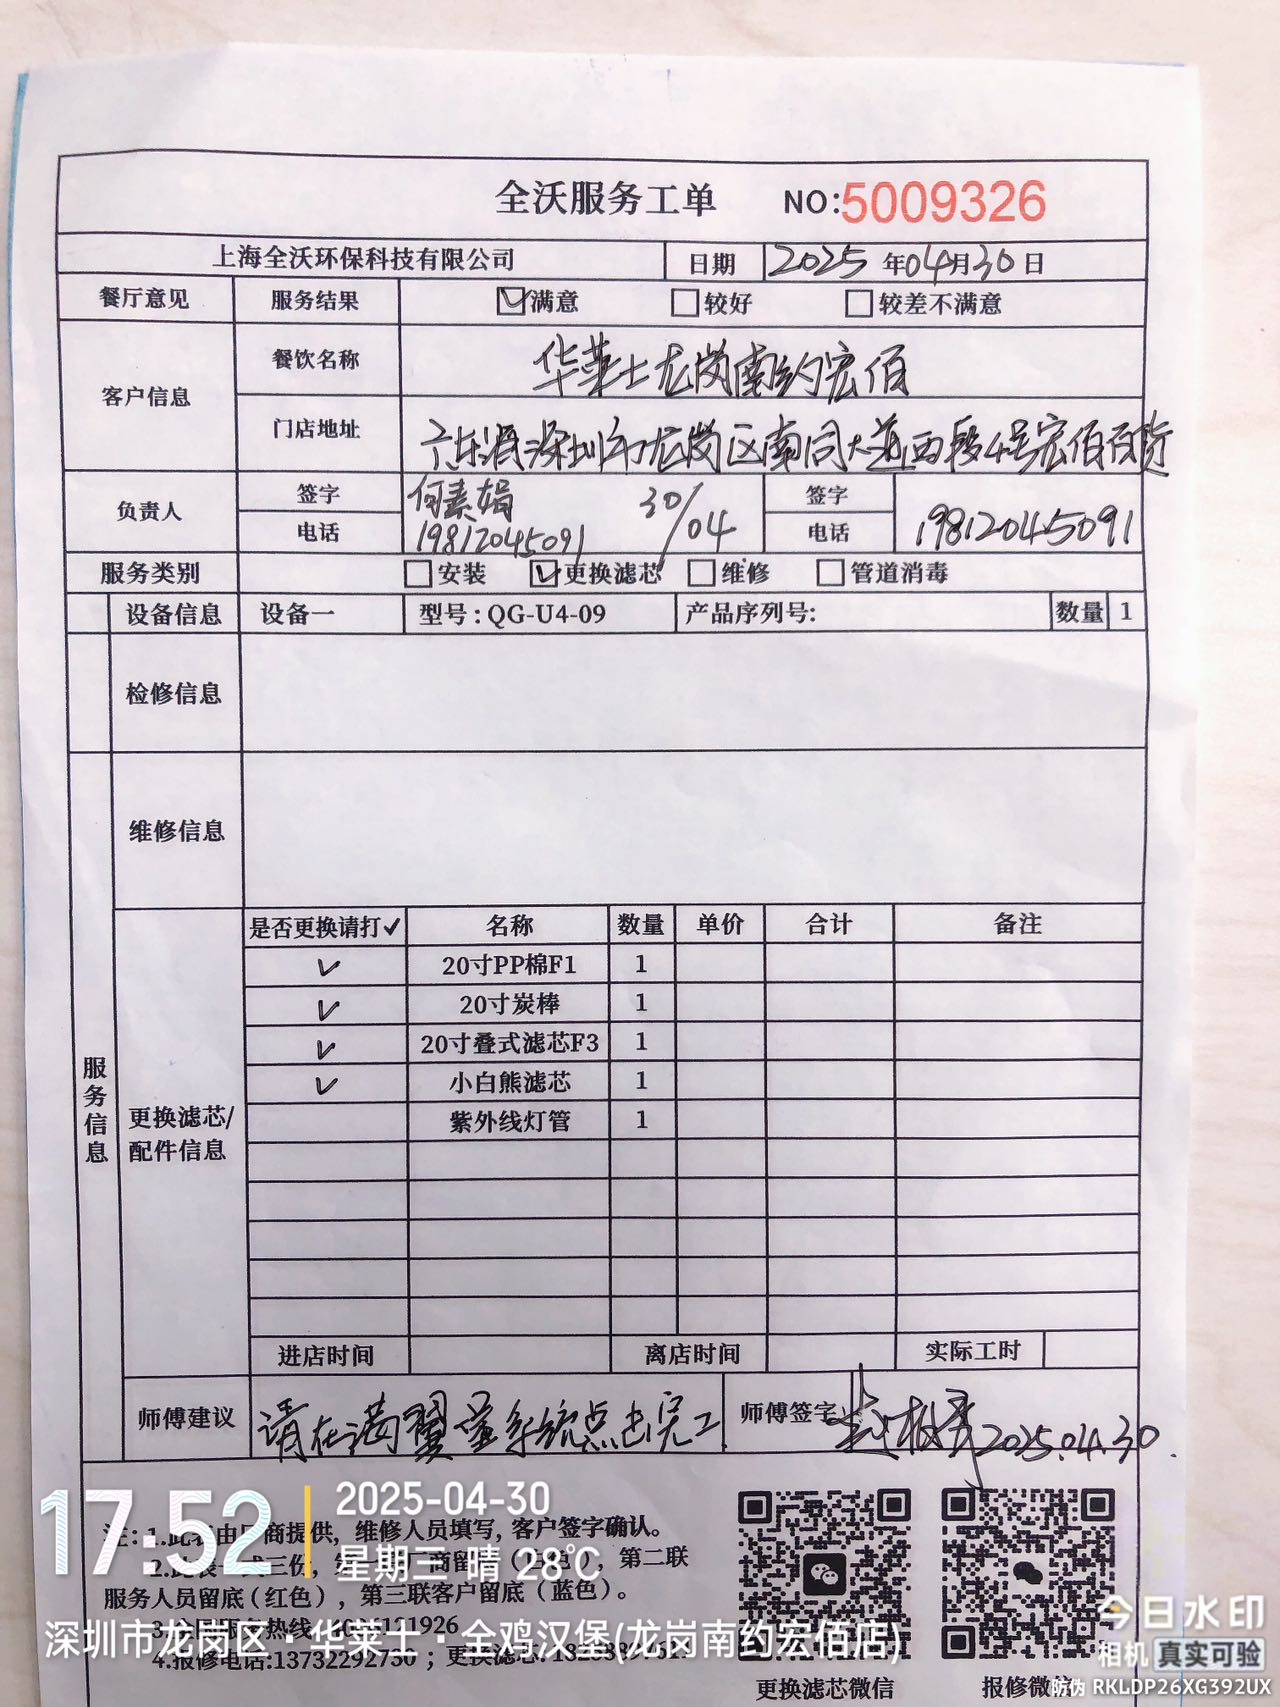 全沃服务工单 NO:5009326
上海全沃环保科技有限公司 日期 2025年04月30日
餐厅意见 服务结果 满意 较好 较差不满意
客户信息 餐饮名称 华莱士龙岗南约宏佰
门店地址 广东省深圳市龙岗区南同大道西段4号宏佰百货
负责人 签字 何素娟 30/04 签字
电话 19812045091 电话 19812045091
服务类别 安装 ✓更换滤芯 维修 管道消毒
设备信息 设备一 型号:QG-U4-09 产品序列号: 数量 1
检修信息
维修信息
服务信息
更换滤芯/配件信息
是否更换请打✓ 名称 数量 单价 合计 备注
✓ 20寸PP棉F1 1
✓ 20寸炭棒 1
✓ 20寸叠式滤芯F3 1
✓ 小白熊滤芯 1
紫外线灯管 1
进店时间 离店时间 实际工时
师傅建议 请在满翼堂系统点击完工 师傅签字 2025.04.30.
注:1.此表由厂商提供,维修人员填写,客户签字确认。
2.此表一式三份,第一联厂商留底(白色),第二联
服务人员留底(红色),第三联客户留底(蓝色)。
4.报修电话:13732292730;更换滤芯:
更换滤芯微信 报修微信
17:52
2025-04-30
星期三 晴 28℃
深圳市龙岗区·华莱士·全鸡汉堡(龙岗南约宏佰店)
今日水印
相机 真实可验
防伪 RKLDP26XG392UX